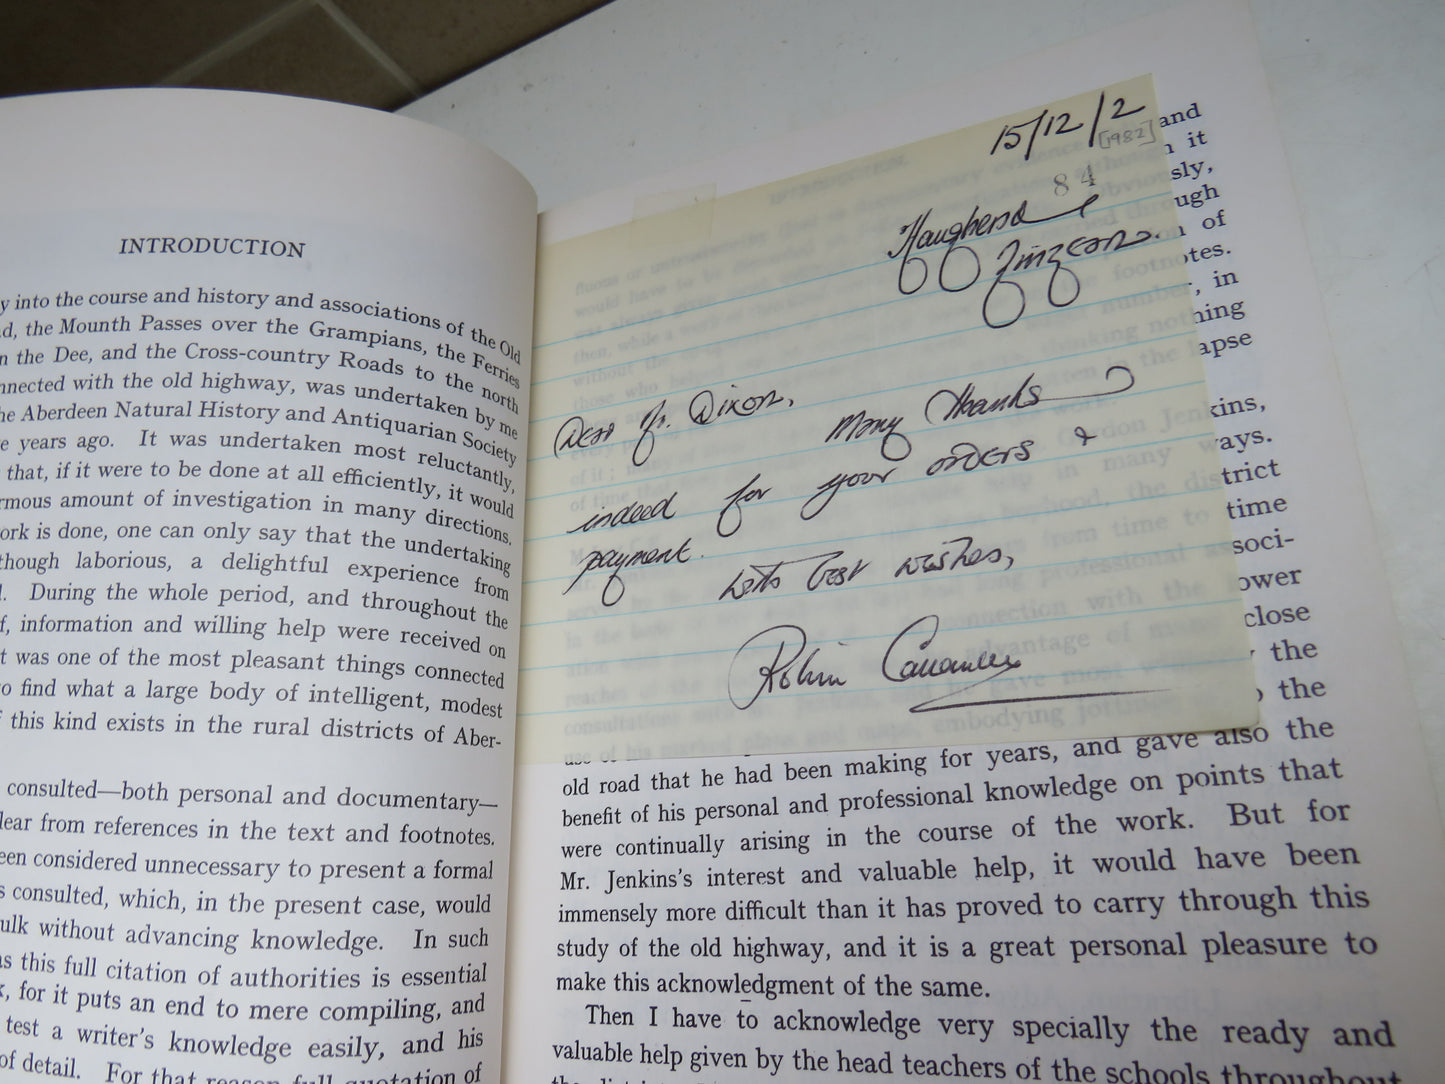 INTRODUCTION
y into the course and history and associations of the Old
d, the Mounth Passes over the Grampians, the Ferries
n the Dee, and the Cross-country Roads to the north
nnected with the old highway, was undertaken by me
he Aberdeen Natural History and Antiquarian Society
e years ago. It was undertaken most reluctantly,
that, if it were to be done at all efficiently, it would
rmous amount of investigation in many directions.
ork is done, one can only say that the undertaking
though laborious, a delightful experience from
l. During the whole period, and throughout the
f, information and willing help were received on
t was one of the most pleasant things connected
o find what a large body of intelligent, modest
f this kind exists in the rural districts of Aber-
consulted—both personal and documentary—
lear from references in the text and footnotes.
een considered unnecessary to present a formal
s consulted, which, in the present case, would
ulk without advancing knowledge. In such
as this full citation of authorities is essential
k, for it puts an end to mere compiling, and
test a writer's knowledge easily, and his
of detail. For that reason full quotation of
15/12/2
[1982]
84
Haughend
Finzean.
Dear Mr. Dixon,
Many Thanks
indeed for your orders &
payment.
With best wishes,
Robin
and
it
sly,
ugh
of
notes.
, in
hing
apse
kins,
ways.
district
time
soci-
lower
close
the
the
old road that he had been making for years, and gave also the
benefit of his personal and professional knowledge on points that
were continually arising in the course of the work. But for
Mr. Jenkins's interest and valuable help, it would have been
immensely more difficult than it has proved to carry through this
study of the old highway, and it is a great personal pleasure to
make this acknowledgment of the same.
Then I have to acknowledge very specially the ready and
valuable help given by the head teachers of the schools throughout